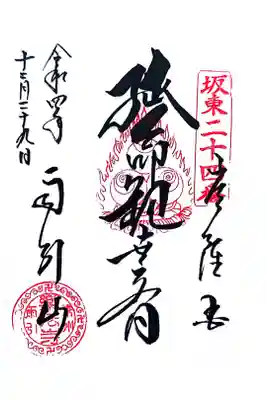 坂東二十四番
常陸国
延命観世音
雨引山
令和四年
十二月二十九日